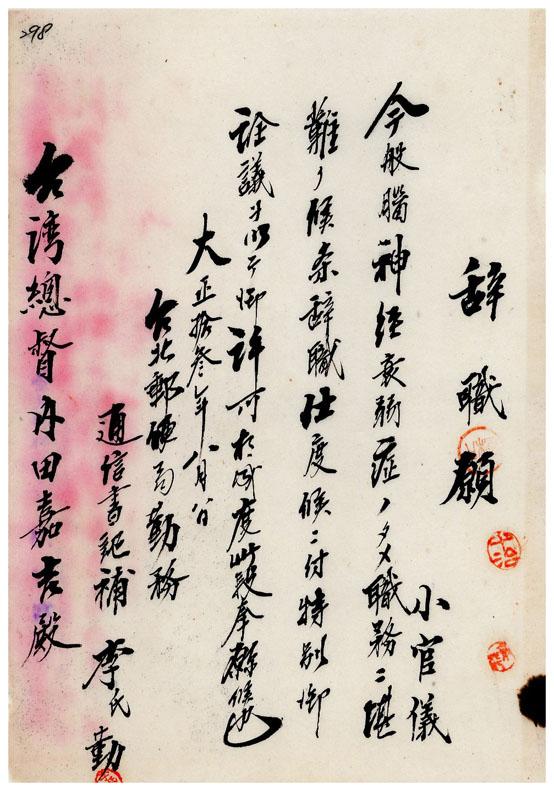 298
辞職願
小官儀
今般腦神経衰弱症ノタメ職務ニ堪
難ク候条辞職仕度候ニ付特別御
詮議ヲ以テ御許可相成度此段奉願候也
大正拾叁年八月八日
台北郵便局勤務
通信書記補 李氏勤
台湾總督内田嘉吉殿